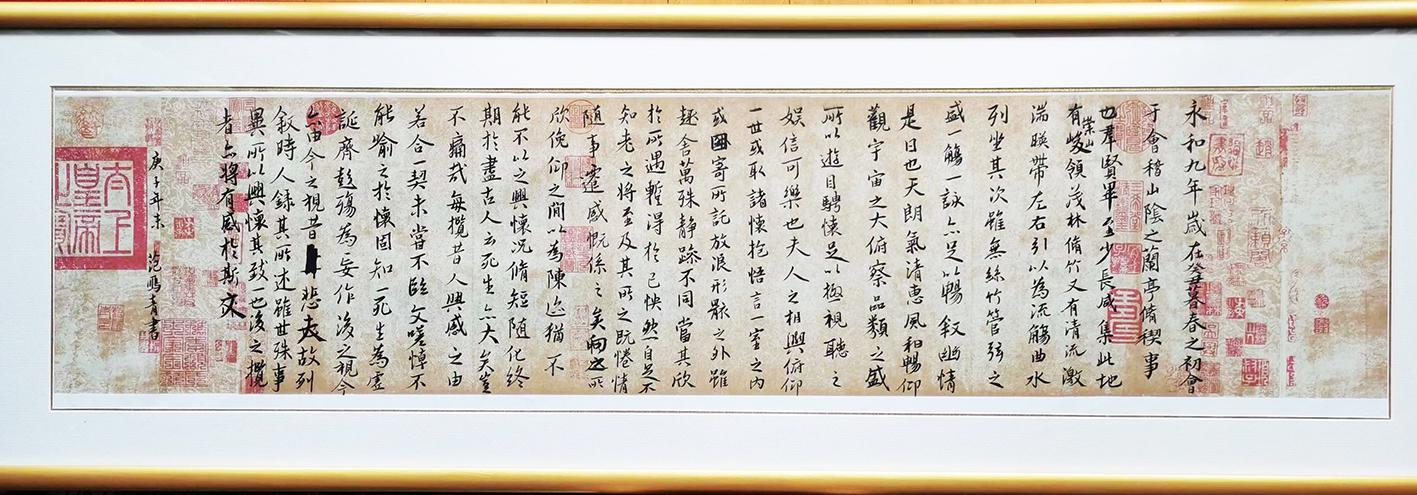 永和九年歲在癸丑暮春之初會
于會稽山陰之蘭亭脩稧事
也羣賢畢至少長咸集此地
有崇山峻領茂林脩竹又有清流激
湍暎帶左右引以為流觴曲水
列坐其次雖無絲竹管弦之
盛一觴一詠亦足以暢敘幽情
是日也天朗氣清惠風和暢仰
觀宇宙之大俯察品類之盛
所以遊目騁懷足以極視聽之
娛信可樂也夫人之相與俯仰
一世或取諸懷抱悟言一室之內
或因寄所託放浪形骸之外雖
趣舍萬殊静躁不同當其欣
於所遇蹔得於己怏然自足不
知老之將至及其所之既惓情
隨事遷感慨係之矣向之所
欣俛仰之閒以為陳迹猶不
能不以之興懷況脩短隨化終
期於盡古人云死生亦大矣豈
不痛哉每攬昔人興感之由
若合一契未嘗不臨文嗟悼不
能喻之於懷固知一死生為虛
誕齊彭殤為妄作後之視今
亦由今之視昔悲夫故列
敘時人錄其所述雖世殊事
異所以興懷其致一也後之攬
者亦將有感於斯文
庚子年末 范鵬青書
太上
皇帝